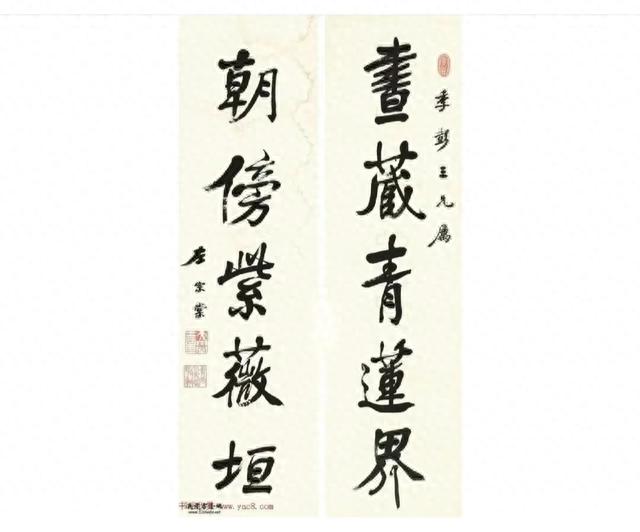 季彭三兄屬
晝藏青蓮界
朝傍紫薇垣
左宗棠
www.yac8.com